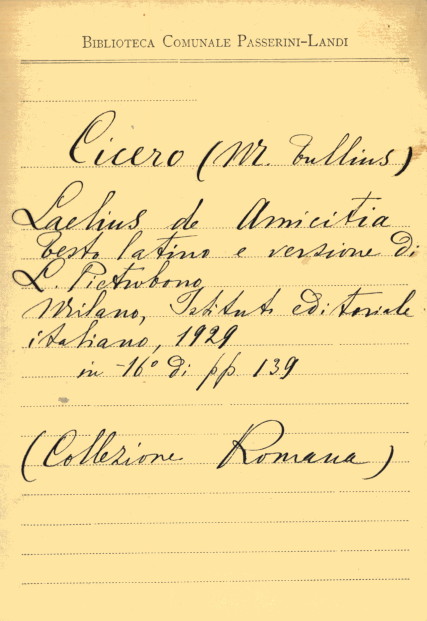 BIBLIOTECA COMUNALE PASSERINI-LANDI
Cicero (M. Tullius)
Laelius de Amicitia
testo latino e versione di
L. Pietrobono
Milano, Istituto editoriale
italiano, 1929
in-16° di pp. 139
(Collezione Romana)